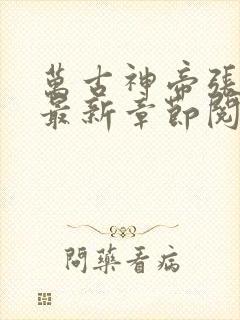 萬古神帝張
最新章節閱
問藥看病